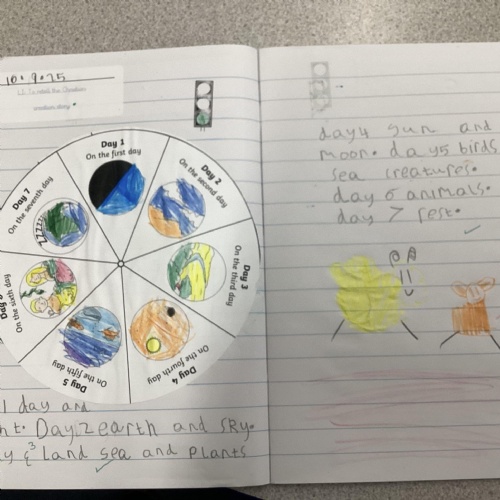 10.9.25
L.I. To retell the Creation
creation story.
Day 1
On the first day
Day 2
On the second day
Day 3
On the third day
Day 4
On the fourth day
Day 5
On the fifth day
On the sixth day
Day 7
On the seventh day
ZZZZ
1 day and
nt. Day 2 earth and sky.
y 3 Land sea and plants
day 4 sun and
moon. day 5 birds
sea creatures.
day 6 animals.
day 7 rest.